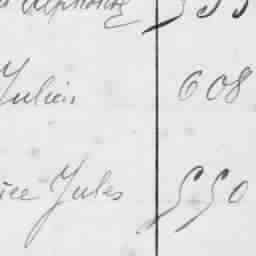 Alphonse 533
Julien 608
ice Jules 550